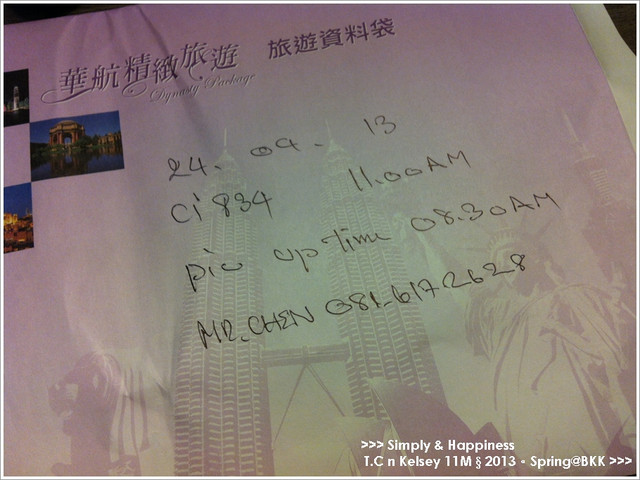 華航精緻旅遊 旅遊資料袋
Dynasty Package
24. 04. 13
CI 834 11.00AM
pic up time 08.30AM
MR. CHEN 081-6172628
>>> Simply & Happiness
T.C n Kelsey 11M § 2013 - Spring@BKK >>>